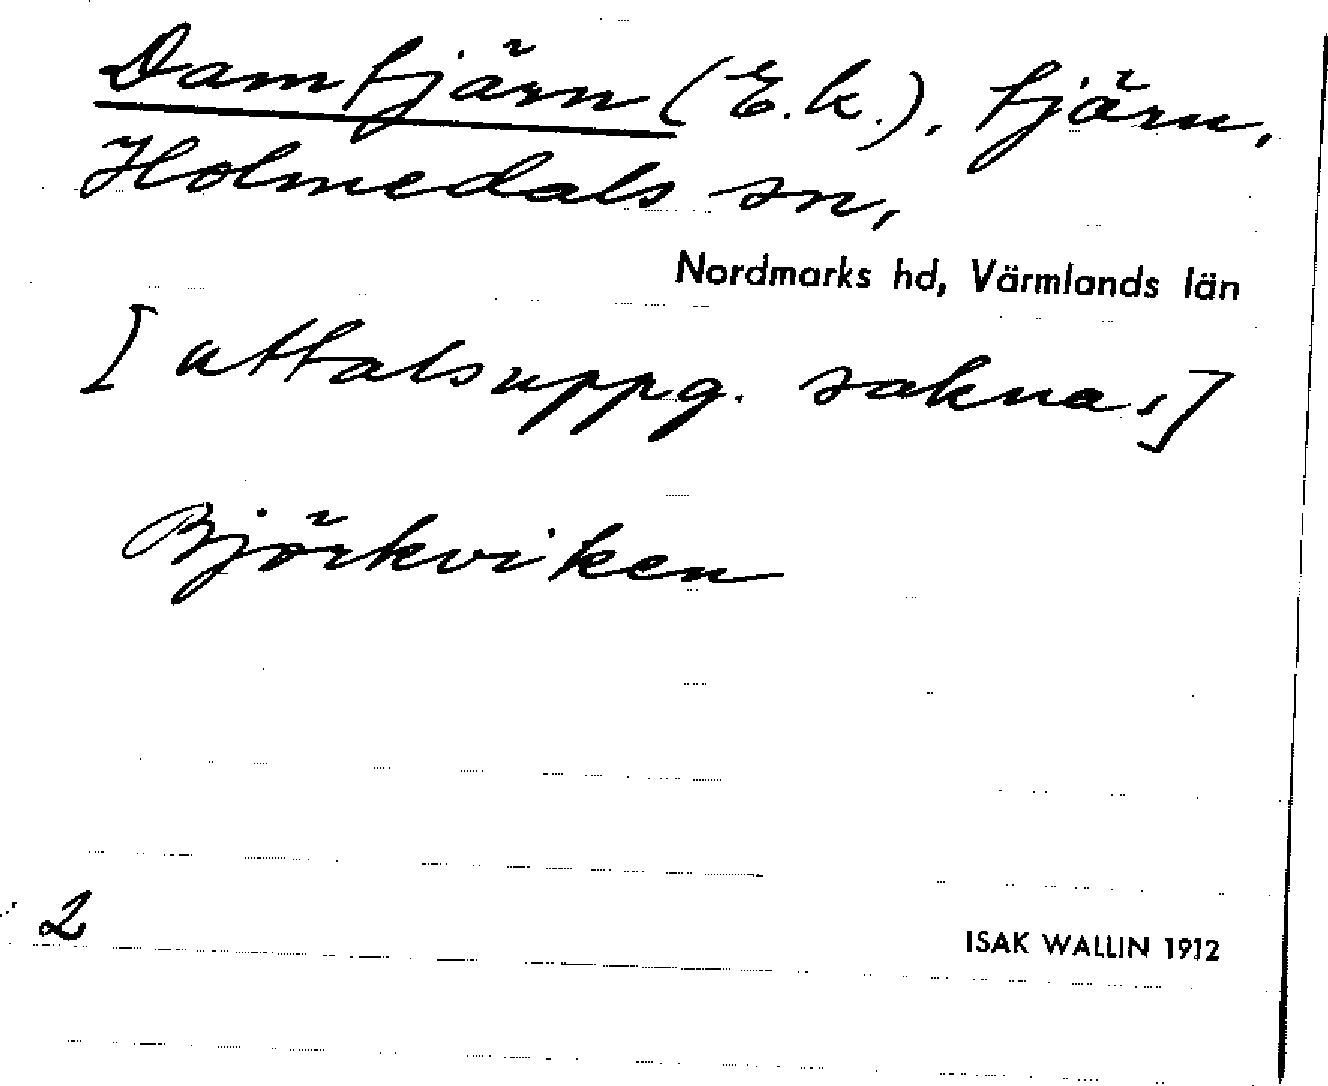 Damtjärn (E.k.), tjärn,
Holmedals sn,
Nordmarks hd, Värmlands län
[uttalsuppg. saknas]
Björkviken
2
ISAK WALLIN 1912